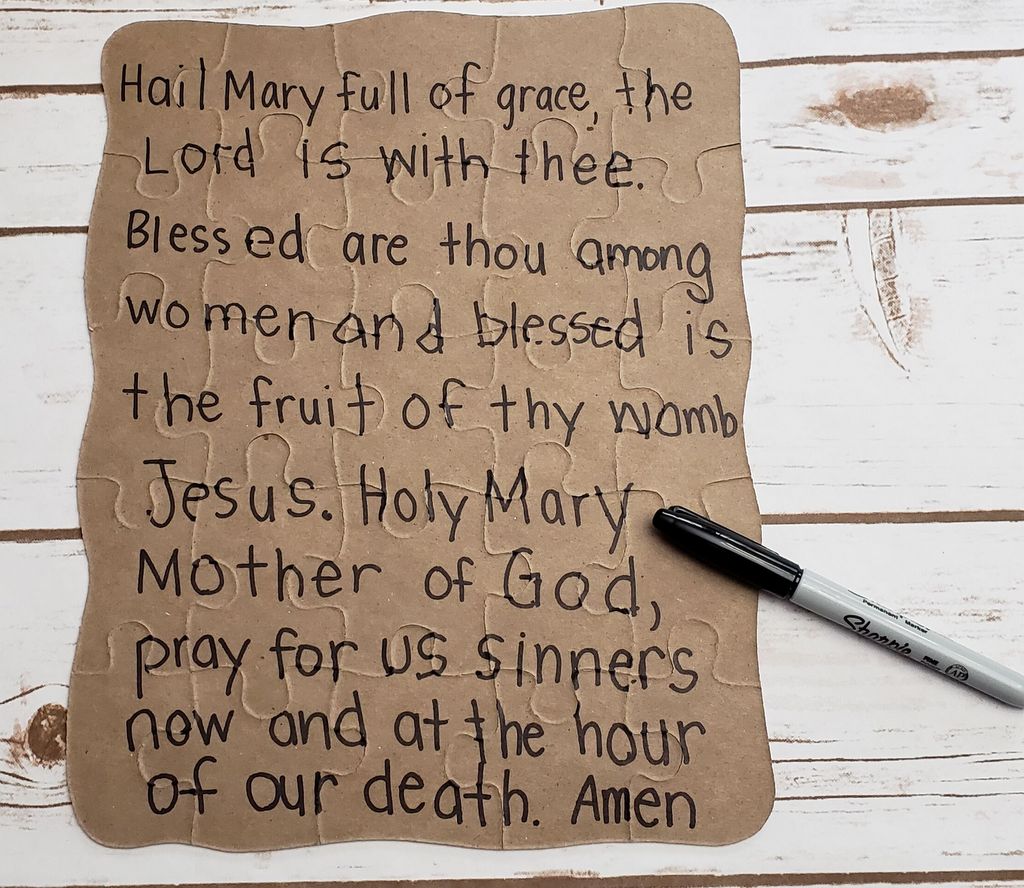 Hail Mary full of grace, the
Lord is with thee.
Blessed are thou among
women and blessed is
the fruit of thy womb
Jesus. Holy Mary
Mother of God,
pray for us sinners
now and at the hour
of our death. Amen
Permanent Marker
Sharpie
FINE
AP